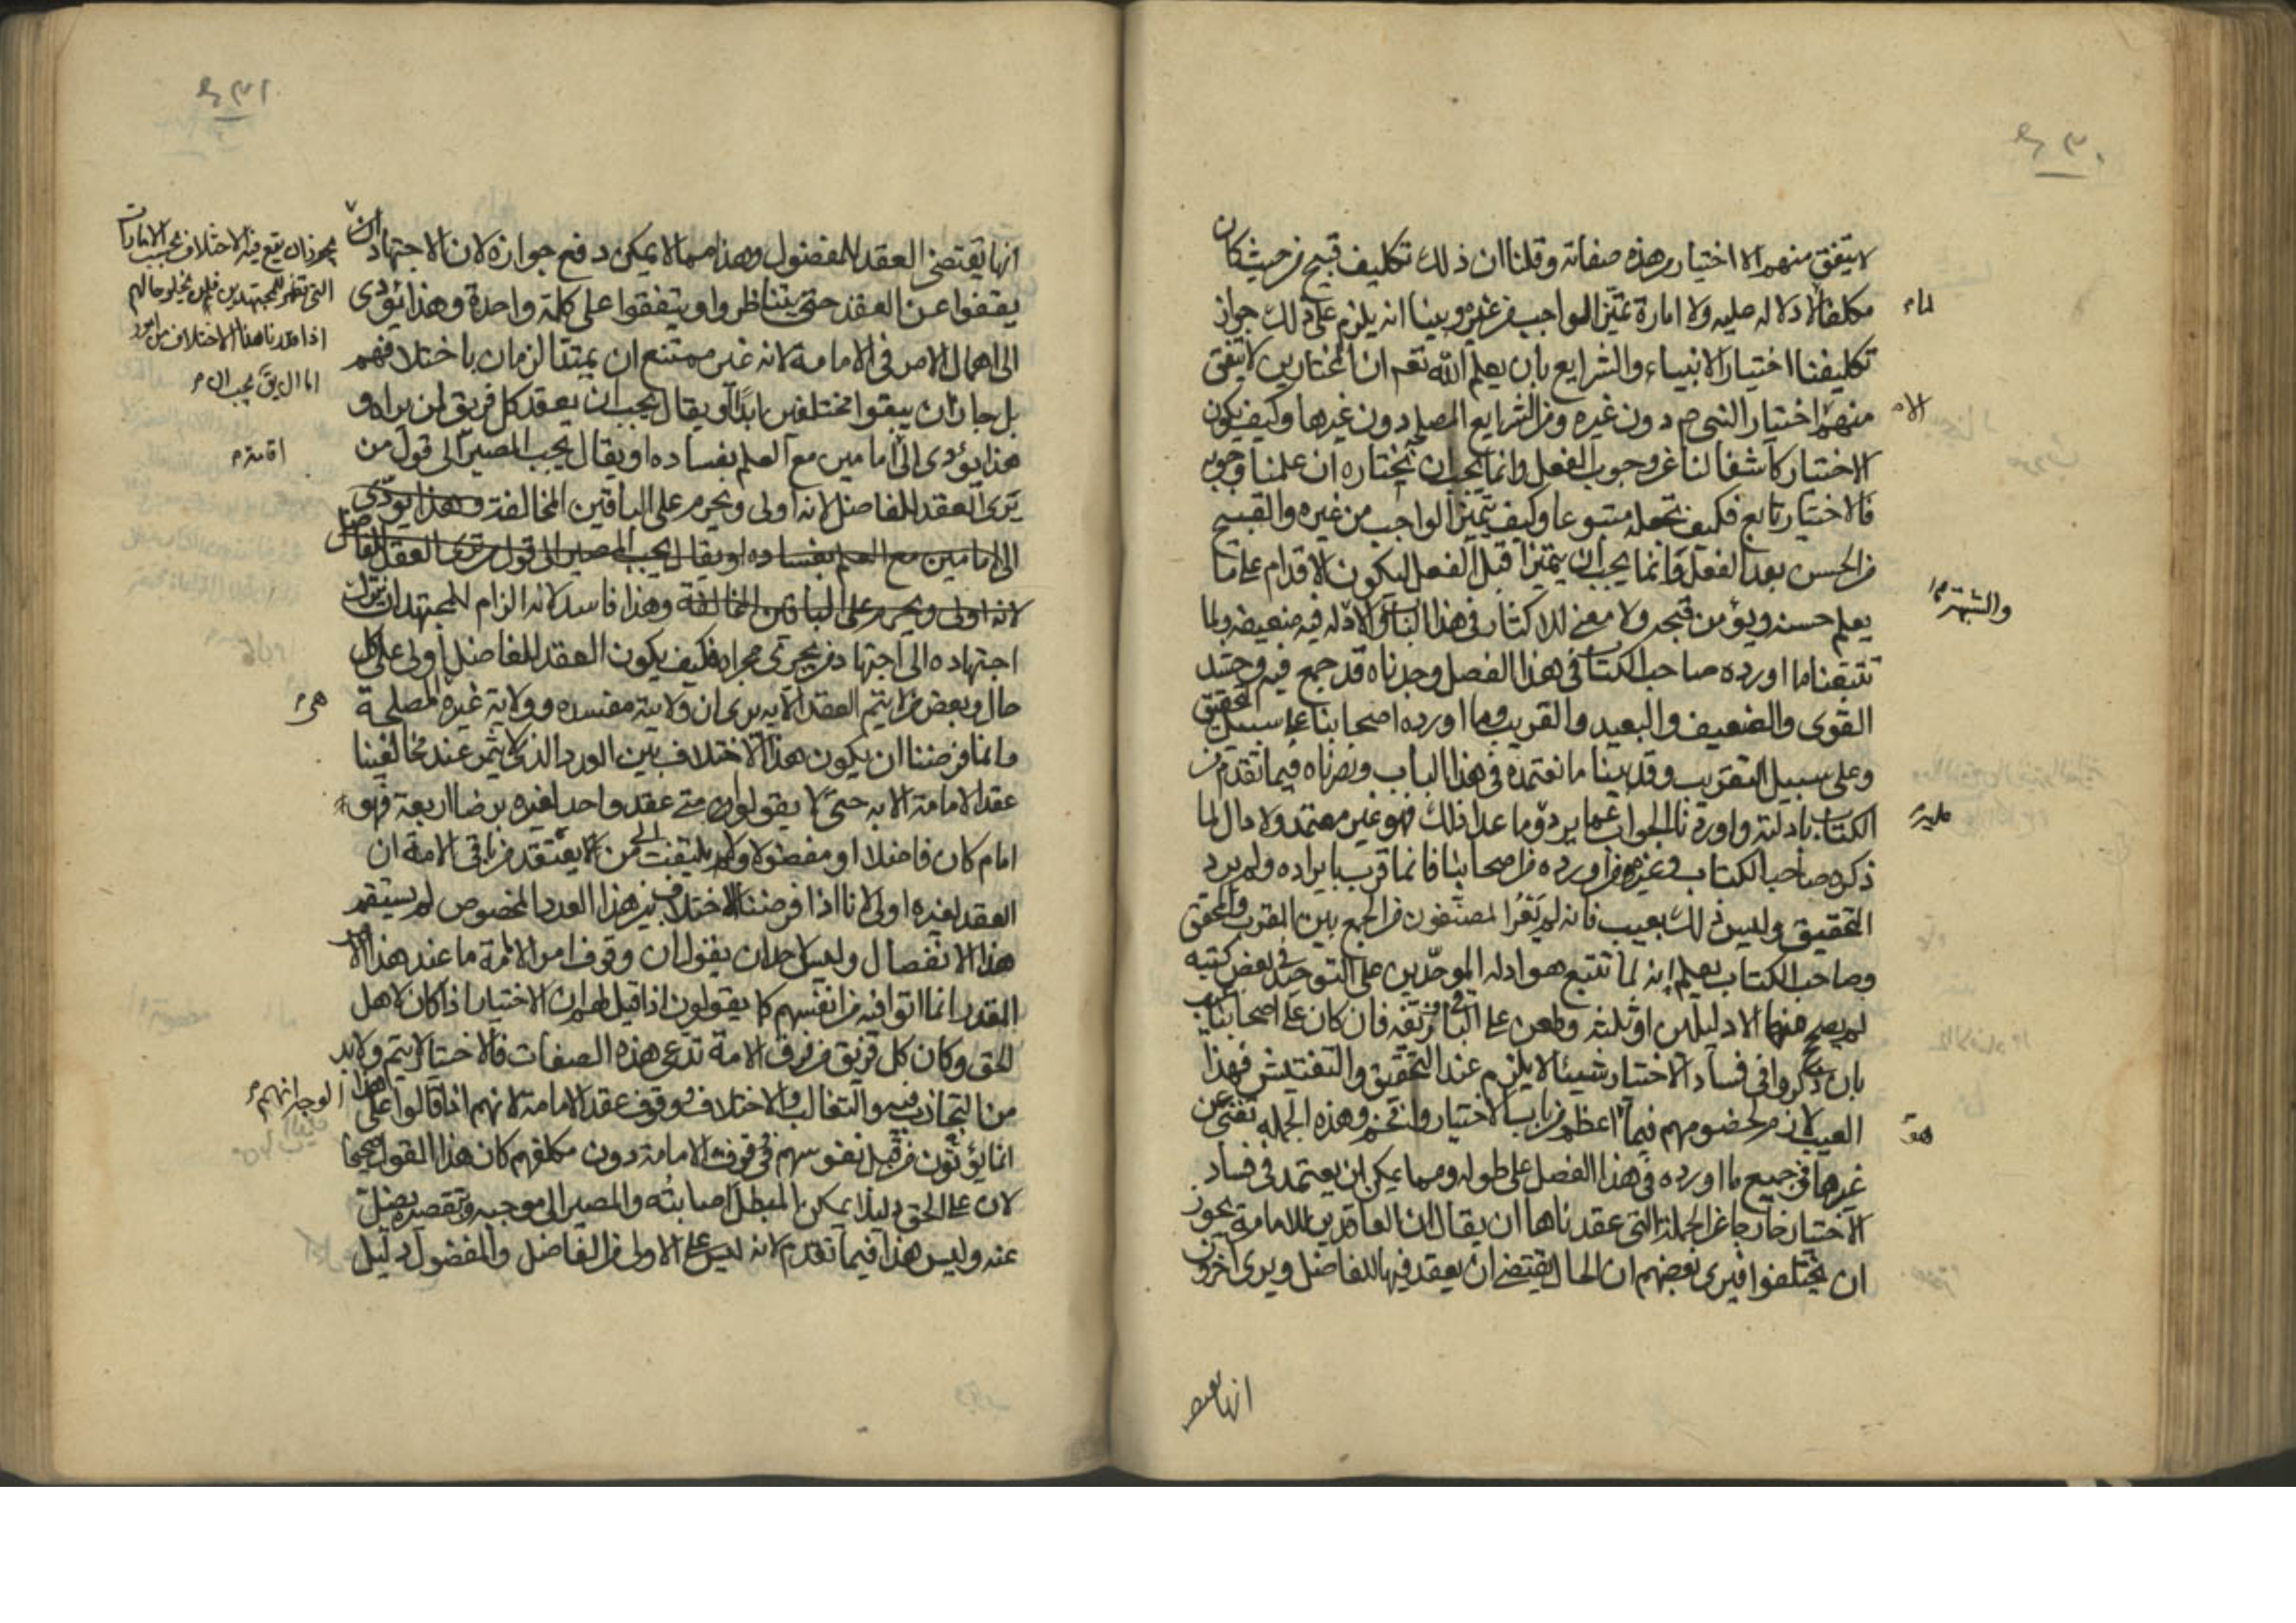 لا يتفق منهم الا اختيار من هذه صفاته وقلنا ان ذلك تكليف قبيح من حيث كان
مكلفا لا دلالة عليه ولا امارة تميز الواجب من غيره وبينا انه يلزم على ذلك جواز
تكليفنا اختيار الانبياء والشرايع بان يعلم الله تعم ان المختارين لا يتفق
منهم اختيار النبي ص دون غيره ومن الشرايع المصلح دون غيرها وكيف يكون
الاختيار كاشفا لنا عن وجوب الفعل وانما يجب ان نختاره ان علمنا وجوبه
فالاختيار تابع فكيف نجعله متبوعا وكيف يتميز الواجب من غيره والقبيح
من الحسن بعد الفعل وانما يجب ان يتميزا قبل الفعل ليكون الاقدام على ما
يعلم حسنه ويؤمن قبحه ولا معنى للاكثار في هذا الباب والادلة فيه ضعيفة ولما
تتبعنا ما اورده صاحب الكتاب في هذا الفصل وجدناه قد جمع فيه وحشد
القوى والضعيف والبعيد والقريب وما اورده اصحابنا على سبيل التحقيق
وعلى سبيل التقريب وقد بينا ما نعتمده في هذا الباب ونصرناه فيما تقدم من
الكتاب بادلته واوردنا الجواب عما يرد وما عدا ذلك فهو غير معتمد ولا دال لما
ذكره صاحب الكتاب وغيره من اورده من اصحابنا فانما قرب بايراده ولم يرد
التحقيق وليس ذلك بعيب فانه لم يعر المصنفون من الجمع بين المقرب والمحقق
وصاحب الكتاب يعلم انه لما تتبع هو ادلة الموحدين على التوحيد في بعض كتبه
لم يصح منها الا دليلين او ثلثة وطعن على الباقي وزيفه فان كان على اصحابنا عيب
بان ذكروا في فساد الاختيار شيئا لا يلزم عند التحقيق والتفتيش فهذا
العيب لازم لخصومهم فيما اعظم من باب الاختيار وافخم وهذه الجملة تغني عن
غيرها في جميع ما اورده في هذا الفصل على طوله ومما يمكن ان يعتمد في فساد
الاختيار خارجا عن الجملة التي عقدناها ان يقال ان العاقدين للامامة يجوز
ان يختلفوا فيرى بعضهم ان الحال يقتضي ان يعقد فيها للفاضل ويرى اخرون
والشبهة
انها يقتضي
انها يقتضي العقد للمفضول وهذا مما لا يمكن دفع جوازه لان الاجتهاد
يجوز ان يقع فيه الاختلاف بحسب الامارات
التي تظهر للمجتهدين فلن يخلو حالهم
اذا قدرنا هذا الاختلاف من امور
اما ان يق يجب ان
يقفوا عن العقد حتى يتناظروا ويتفقوا على كلمة واحدة وهذا يؤدي
الى اهمال الامر في الامامة لانه غير ممتنع ان يمتد الزمان باختلافهم
بل جاز ان يبقوا مختلفين ابدا او يقال يجب ان يعقد كل فريق لمن يراه و
هذا يؤدي الى امامين مع العلم بفساده او يقال يجب المصير الى قول من
اقامة
يرى العقد للفاضل لانه اولى ويحرم على الباقين المخالفة وهذا يؤدي
الى امامين مع العلم بفساده او يقال يجب المصير الى قول من يرى العقد للفاضل
لانه اولى ويحرم على الباقين المخالفة وهذا فاسد لانه الزام للمجتهد ان يترك
اجتهاده الى اجتهاد من يجري مجراه فكيف يكون العقد للفاضل اولى على كل
حال وبعض من لا يتم العقد الا به يرى ان ولايته مفسدة وولاية غيره المصلحة
هي
وانما فرضنا ان يكون هذا الاختلاف بين العدد الذي لا يتم عند مخالفينا
عقد الامامة الا به حتى لا يقولوا متى عقد واحد لغيره برضا اربعة فهو
امام كان فاضلا او مفضولا ولم يلتفت الى من لا يعتقد من باقي الامة ان
العقد لغيره اولى لانا اذا فرضنا الاختلاف بين هذا العدد المخصوص لم يستقم
هذا الانفصال وليس لاحد ان يقول ان وقوف امر الائمة ما عند هذا
القدر انما اتوا فيه من انفسهم كما يقولون اذا قيل لهم ان الاختيار اذا كان لاهل
الحق وكان كل فريق من فرق الامة تدعي هذه الصفات فالاختيار لا يتم ولا بد
من التجاذب فيه والتغالب والاختلاف ووقوف عقد الامامة لانهم اذا قالوا على هذا الوجه انهم
انما يؤتون من قبل نفوسهم في قوف الامامة دون مكلفهم كان هذا القول صحيحا
لان على الحق دليلا يمكن المبطل اصابته والمصير الى موجبه وبتقصيره يضل
عنه وليس هذا فيما تقدم لانه ليس على الاولى من الفاضل والمفضول دليل